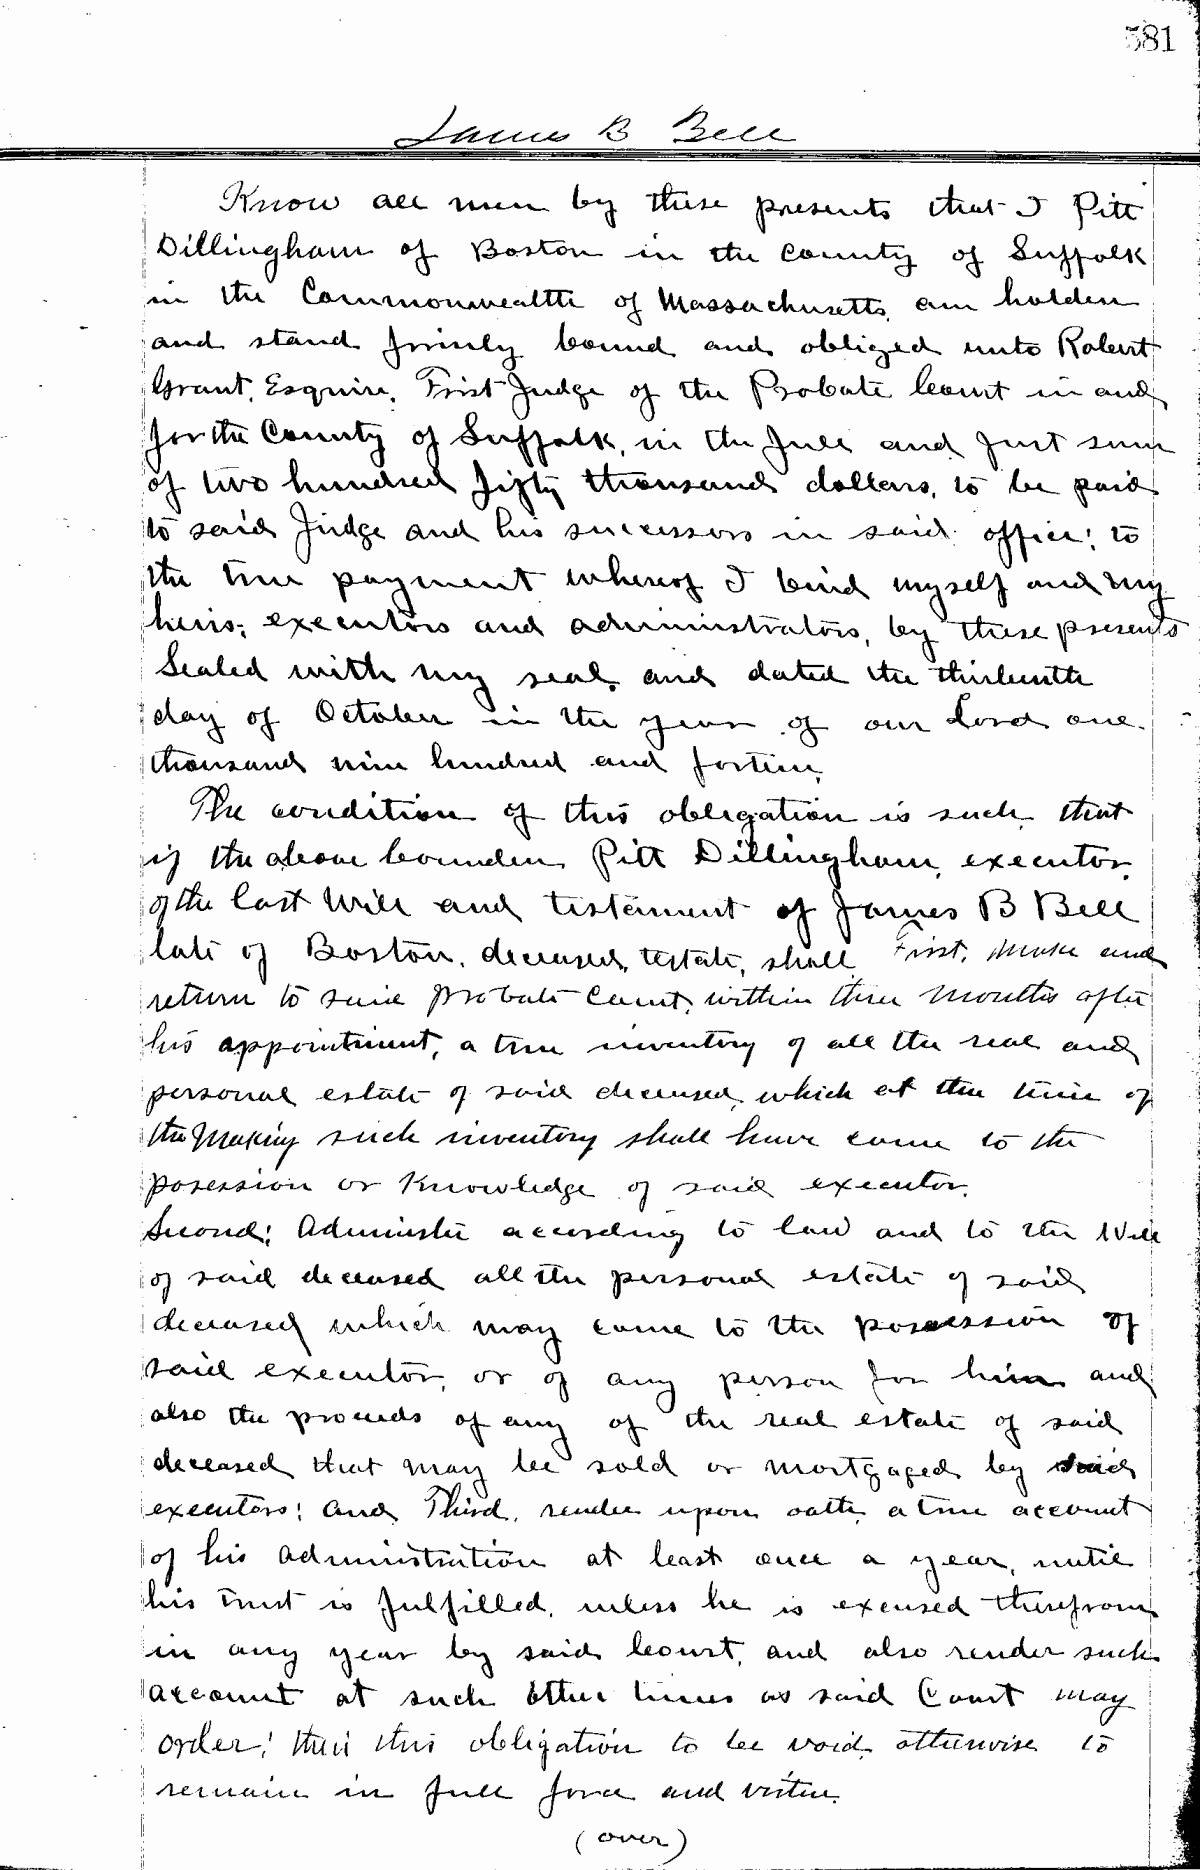 581
James B Bell
Know all men by these presents that I Pitt
Dillingham of Boston in the County of Suffolk
in the Commonwealth of Massachusetts, am holden
and stand firmly bound and obliged unto Robert
Grant, Esquire, First Judge of the Probate Court in and
for the County of Suffolk, in the full and just sum
of two hundred fifty thousand dollars, to be paid
to said Judge and his successors in said office; to
the true payment whereof I bind myself and my
heirs, executors and administrators, by these presents
Sealed with my seal, and dated the thirteenth
day of October in the year of our Lord one
thousand nine hundred and fortine,
The condition of this obligation is such, that
if the above bounden Pitt Dillingham, executor,
of the last Will and testament of James B Bell
late of Boston, deceased, testate, shall First, make and
return to said Probate Court, within three months after
his appointment, a true inventory of all the real and
personal estate of said deceased, which at the time of
the making such inventory shall have come to the
posession or knowledge of said executor,
Second; Administer according to law and to the Will
of said deceased all the personal estate of said
deceased which may come to the possession of
said executor, or of any person for him and
also the proceeds of any of the real estate of said
deceased that may be sold or mortgaged by said
executors; and Third, render upon oath, a true account
of his administration at least once a year, until
his trust is fulfilled, unless he is excused therefrom
in any year by said Court, and also render such
account at such other times as said Court may
order; then this obligation to be void, otherwise to
remain in full force and virtue.
(over)